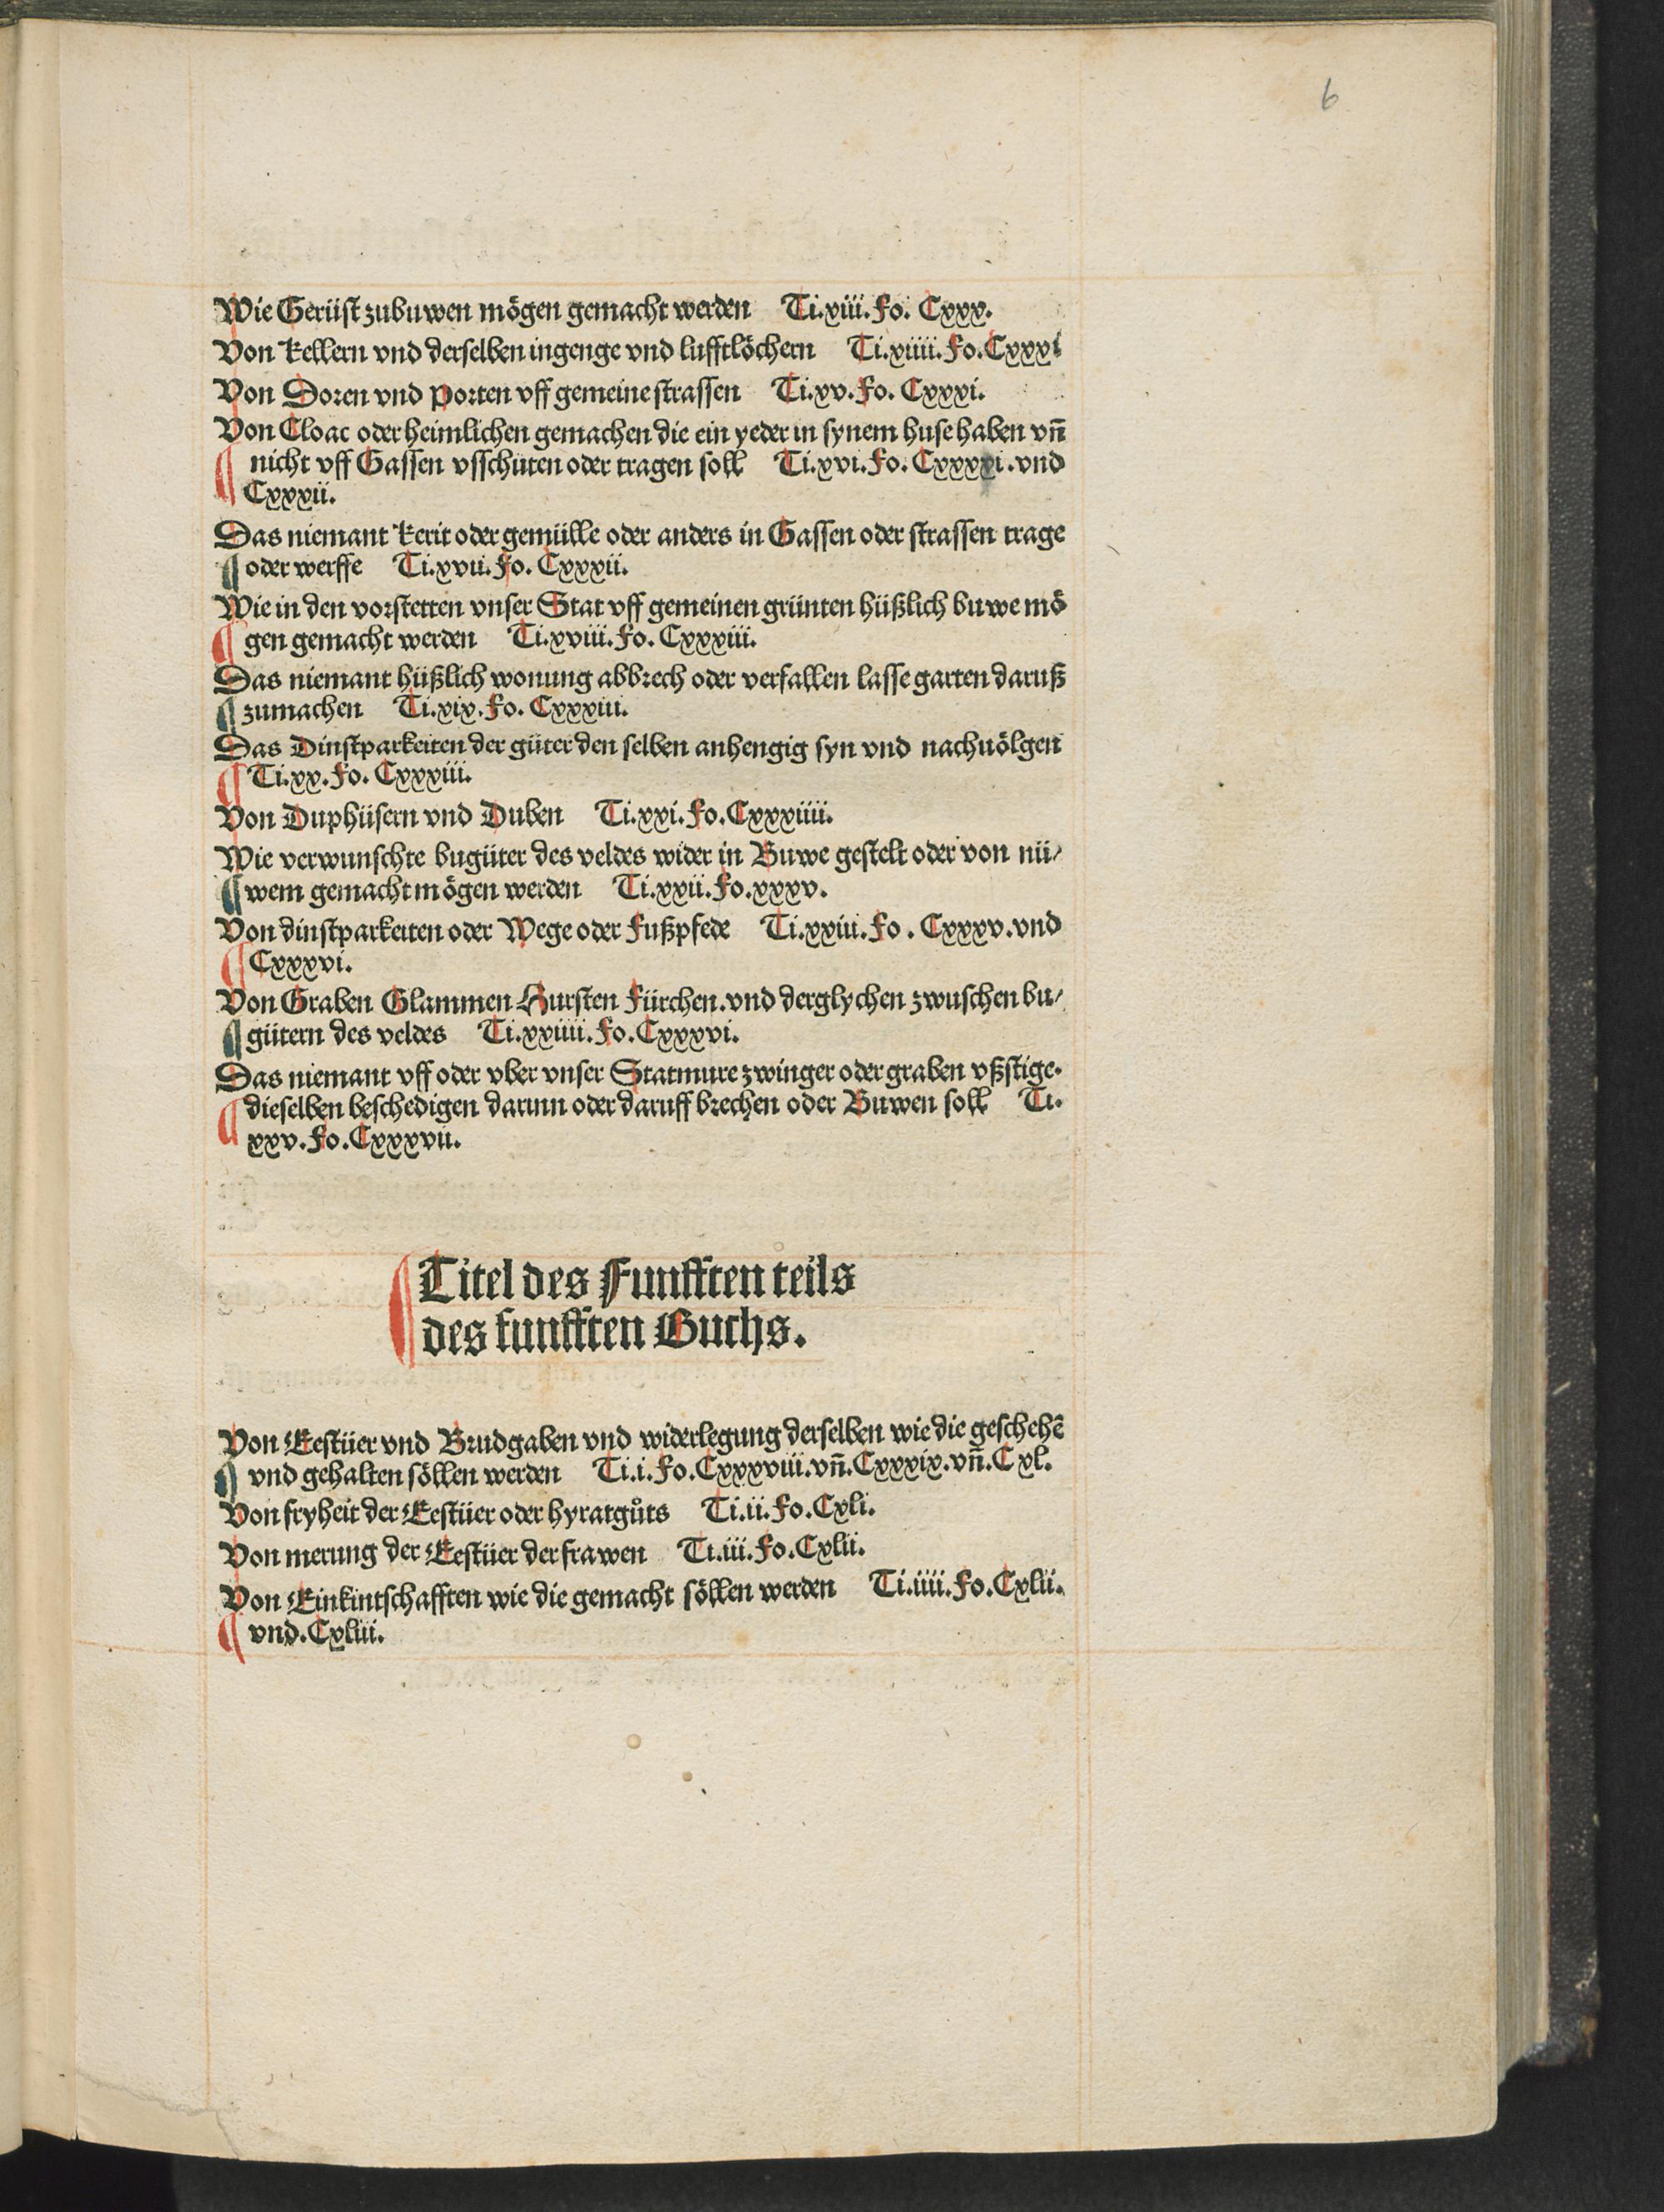 6
Wie Gerüst zubuwen mögen gemacht werden Ti.xiii.Fo. Cxxx.
Von kellern vnd derselben ingenge vnd lufftlöchern Ti.xiiii.Fo.Cxxxi
Von Doren vnd Porten vff gemeine strassen Ti.xv.Fo. Cxxxi.
Von Cloac oder heimlichen gemachen die ein yeder in synem huse haben vn̄
nicht vff Gassen vsschüten oder tragen soll Ti.xvi.Fo. Cxxxxi.vnd
Cxxxii.
Das niemant kerit oder gemülle oder anders in Gassen oder strassen trage
oder werffe Ti.xvii.Fo. Cxxxii.
Wie in den vorstetten vnser Stat vff gemeinen grünten hüßlich buwe mö
gen gemacht werden Ti.xviii.Fo. Cxxxiii.
Das niemant hüßlich wonung abbrech oder verfallen lasse garten daruß
zumachen Ti.xix.Fo. Cxxxiii.
Das Dinstparkeiten der güter den selben anhengig syn vnd nachuölgen
Ti.xx.Fo. Cxxxiii.
Von Duphüsern vnd Duben Ti.xxi.Fo.Cxxxiiii.
Wie verwunschte bugüter des veldes wider in Buwe gestelt oder von nü/
wem gemacht mögen werden Ti.xxii.Fo.xxxv.
Von dinstparkeiten oder Wege oder Fußpfede Ti.xxiii.Fo. Cxxxv.vnd
Cxxxvi.
Von Graben Glammen Hursten Fürchen.vnd derglychen zwuschen bu/
gütern des veldes Ti.xxiiii.Fo.Cxxxvi.
Das niemant vff oder vber vnser Statmure zwinger oder graben vßstige.
dieselben beschedigen darinn oder daruff brechen oder Buwen soll Ti.
xxv.Fo.Cxxxvii.
Titel des Funfften teils
des funfften Buchs.
Von Eestüer vnd Brudgaben vnd widerlegung derselben wie die geschehē
vnd gehalten söllen werden Ti.i.Fo.Cxxxviii.vn̄.Cxxxix.vn̄.Cxl.
Von fryheit der Eestüer oder hyratgůts Ti.ii.Fo.Cxli.
Von merung der Eestüer der frawen Ti.iii.Fo.Cxlii.
Von Einkintschafften wie die gemacht söllen werden Ti.iiii.Fo.Cxlii.
vnd.Cxliii.